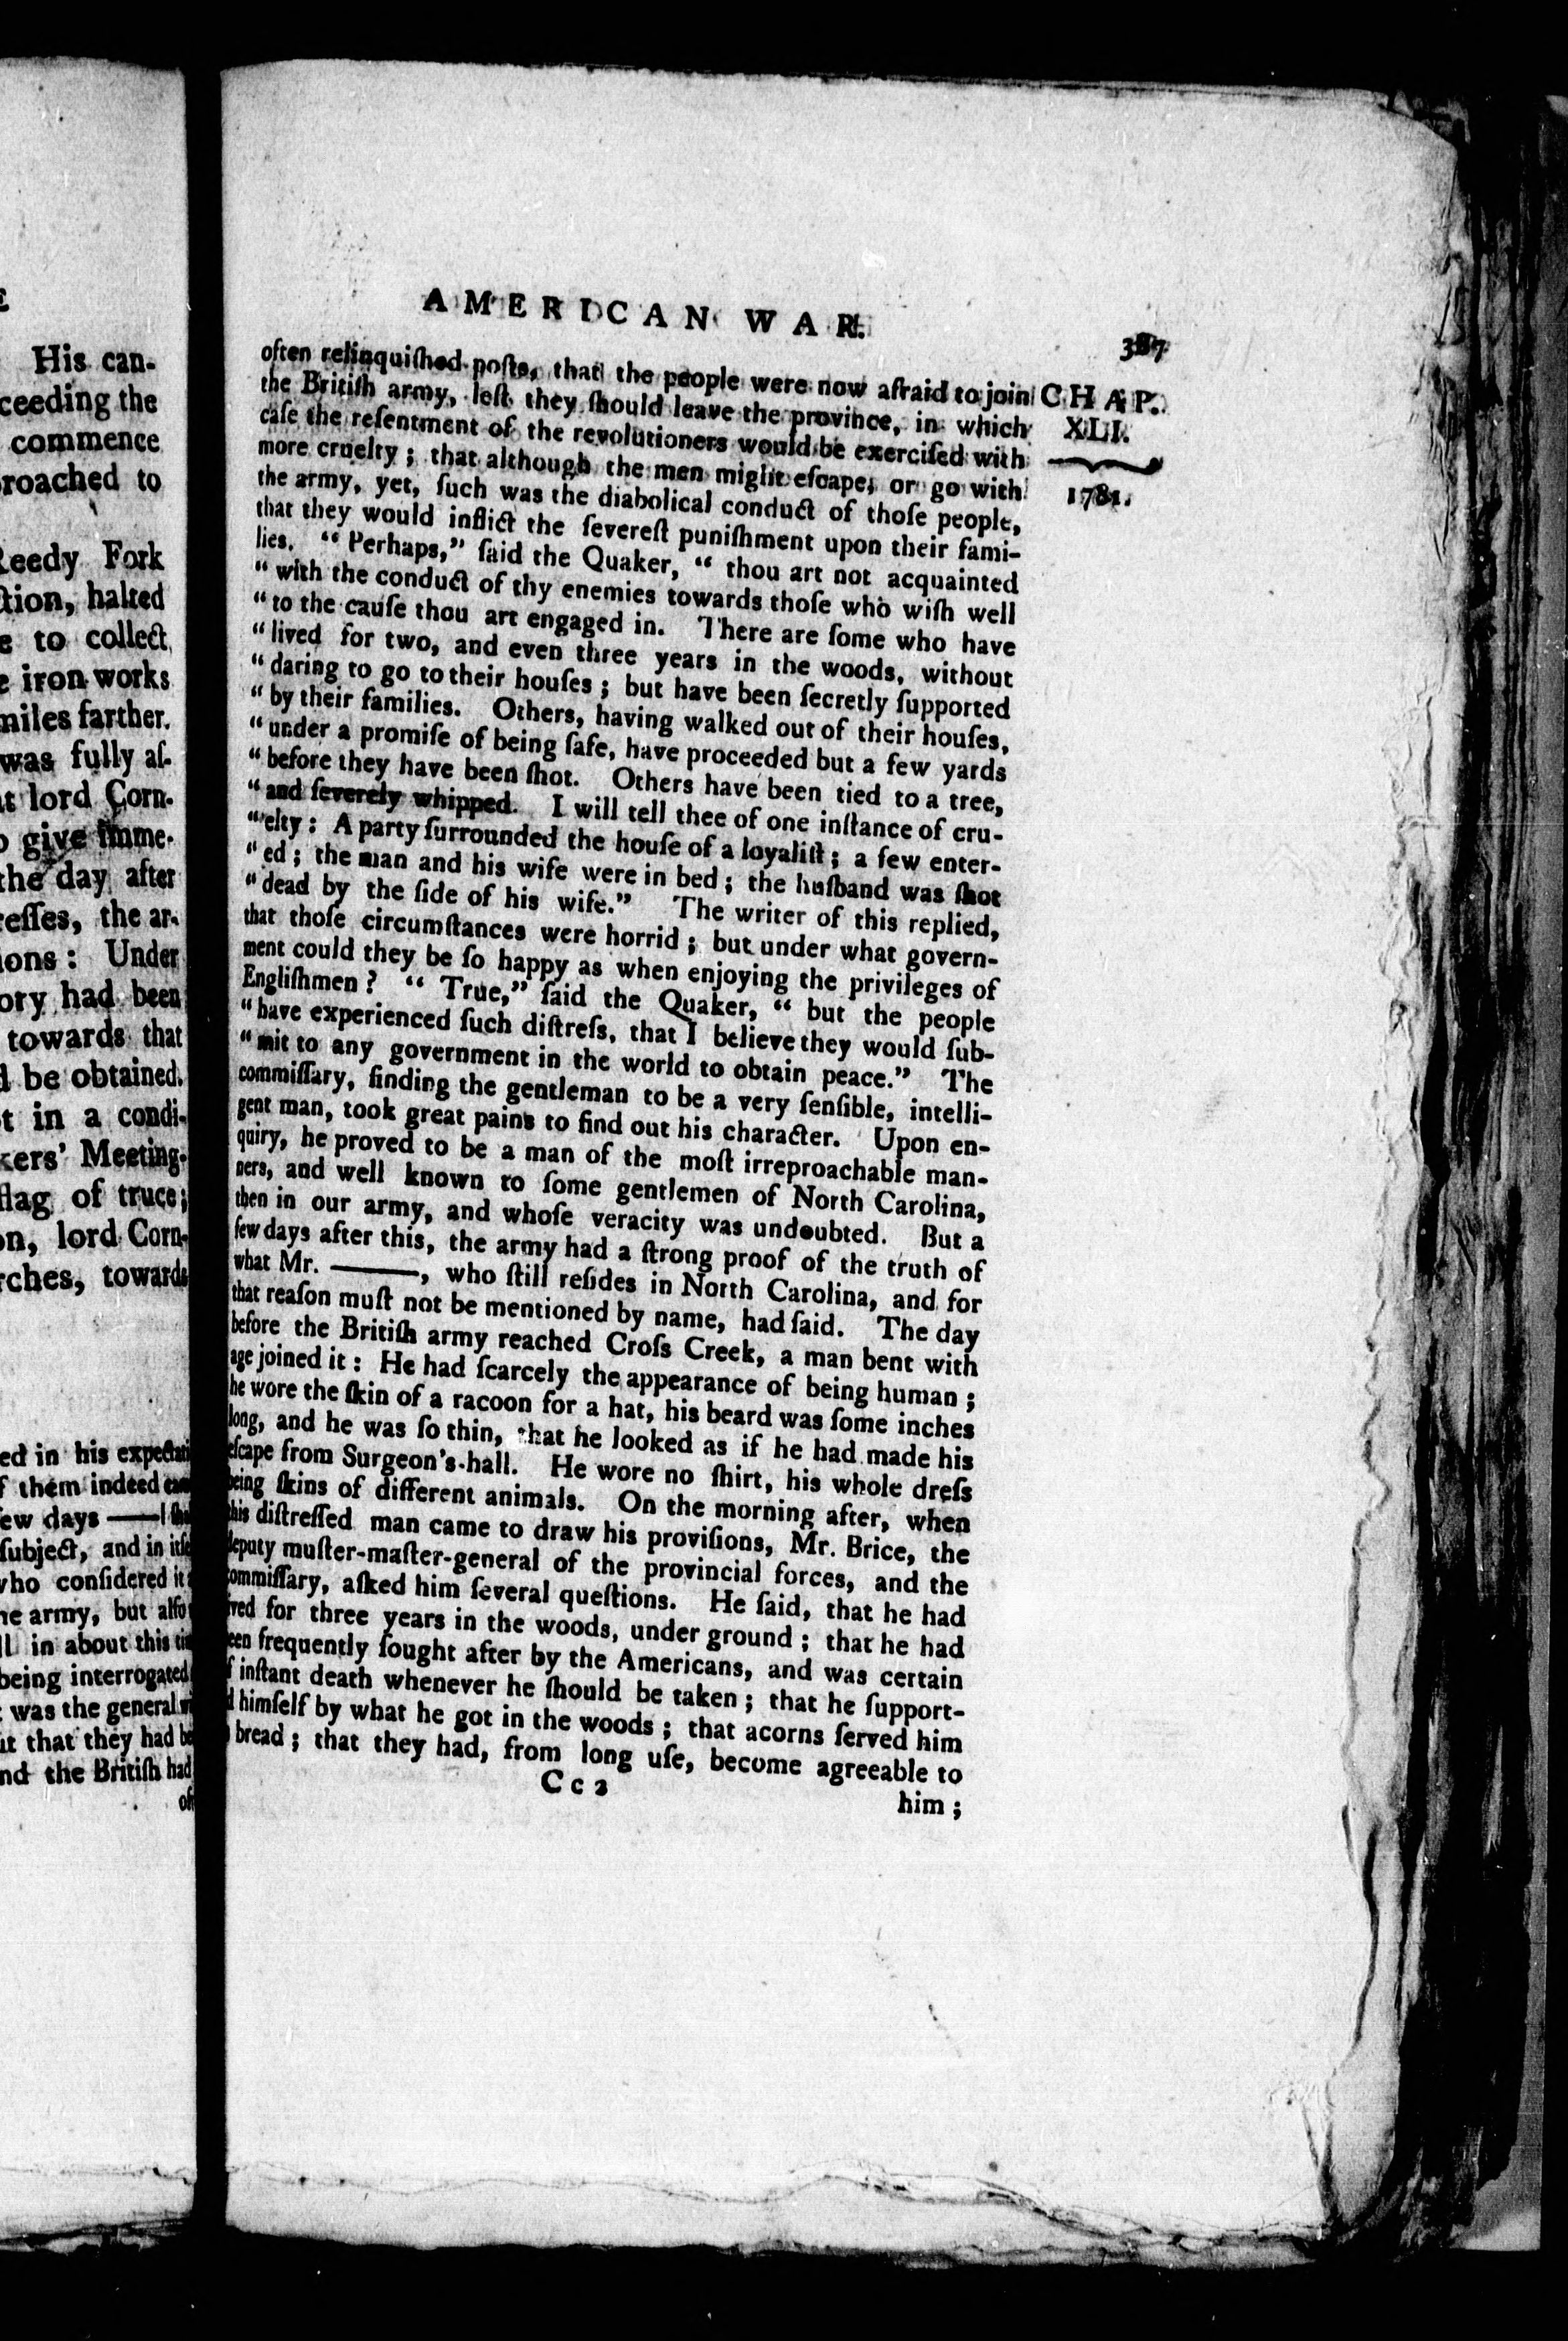 E
His can-
ceeding the
commence
roached to
Reedy Fork
ction, halted
e to collect
e iron works
miles farther.
was fully aſ-
at lord Corn-
o give imme-
the day after
reſſes, the ar-
ions: Under
ory had been
towards that
d be obtained.
t in a condi-
kers' Meeting-
flag of truce;
on, lord Corn-
rches, towards
ed in his expectati
f them indeed
ew days ——I
ſubject, and in
who conſidered it
he army, but alſo
ll in about this
being interrogated
was the general
it that they had be
nd the Britiſh had
of
AMERICAN WAR.
387
often relinquiſhed poſts, that the people were now afraid to join
the Britiſh army, leſt they ſhould leave the province, in which
caſe the reſentment of the revolutioners would be exerciſed with
more cruelty; that although the men might eſcape, or go with
the army, yet, ſuch was the diabolical conduct of thoſe people,
that they would inflict the ſevereſt puniſhment upon their fami-
lies. “ Perhaps,” ſaid the Quaker, “ thou art not acquainted
“ with the conduct of thy enemies towards thoſe who wiſh well
“ to the cauſe thou art engaged in. There are ſome who have
“ lived for two, and even three years in the woods, without
“ daring to go to their houſes; but have been ſecretly ſupported
“ by their families. Others, having walked out of their houſes,
“ under a promiſe of being ſafe, have proceeded but a few yards
“ before they have been ſhot. Others have been tied to a tree,
“ and ſeverely whipped. I will tell thee of one inſtance of cru-
“ elty: A party ſurrounded the houſe of a loyaliſt; a few enter-
“ ed; the man and his wife were in bed; the huſband was ſhot
“ dead by the ſide of his wife.” The writer of this replied,
that thoſe circumſtances were horrid; but under what govern-
ment could they be ſo happy as when enjoying the privileges of
Engliſhmen? “ True,” ſaid the Quaker, “ but the people
“ have experienced ſuch diſtreſs, that I believe they would ſub-
“ mit to any government in the world to obtain peace.” The
commiſſary, finding the gentleman to be a very ſenſible, intelli-
gent man, took great pains to find out his character. Upon en-
quiry, he proved to be a man of the moſt irreproachable man-
ners, and well known to ſome gentlemen of North Carolina,
then in our army, and whoſe veracity was undoubted. But a
few days after this, the army had a ſtrong proof of the truth of
what Mr. ———, who ſtill reſides in North Carolina, and for
that reaſon muſt not be mentioned by name, had ſaid. The day
before the Britiſh army reached Croſs Creek, a man bent with
age joined it: He had ſcarcely the appearance of being human;
he wore the ſkin of a racoon for a hat, his beard was ſome inches
long, and he was ſo thin, that he looked as if he had made his
eſcape from Surgeon's-hall. He wore no ſhirt, his whole dreſs
being ſkins of different animals. On the morning after, when
this diſtreſſed man came to draw his proviſions, Mr. Brice, the
deputy muſter-maſter-general of the provincial forces, and the
commiſſary, aſked him ſeveral queſtions. He ſaid, that he had
ived for three years in the woods, under ground; that he had
een frequently ſought after by the Americans, and was certain
f inſtant death whenever he ſhould be taken; that he ſupport-
d himſelf by what he got in the woods; that acorns ſerved him
bread; that they had, from long uſe, become agreeable to
C c 2
him;
CHAP.
XLI.
1781.